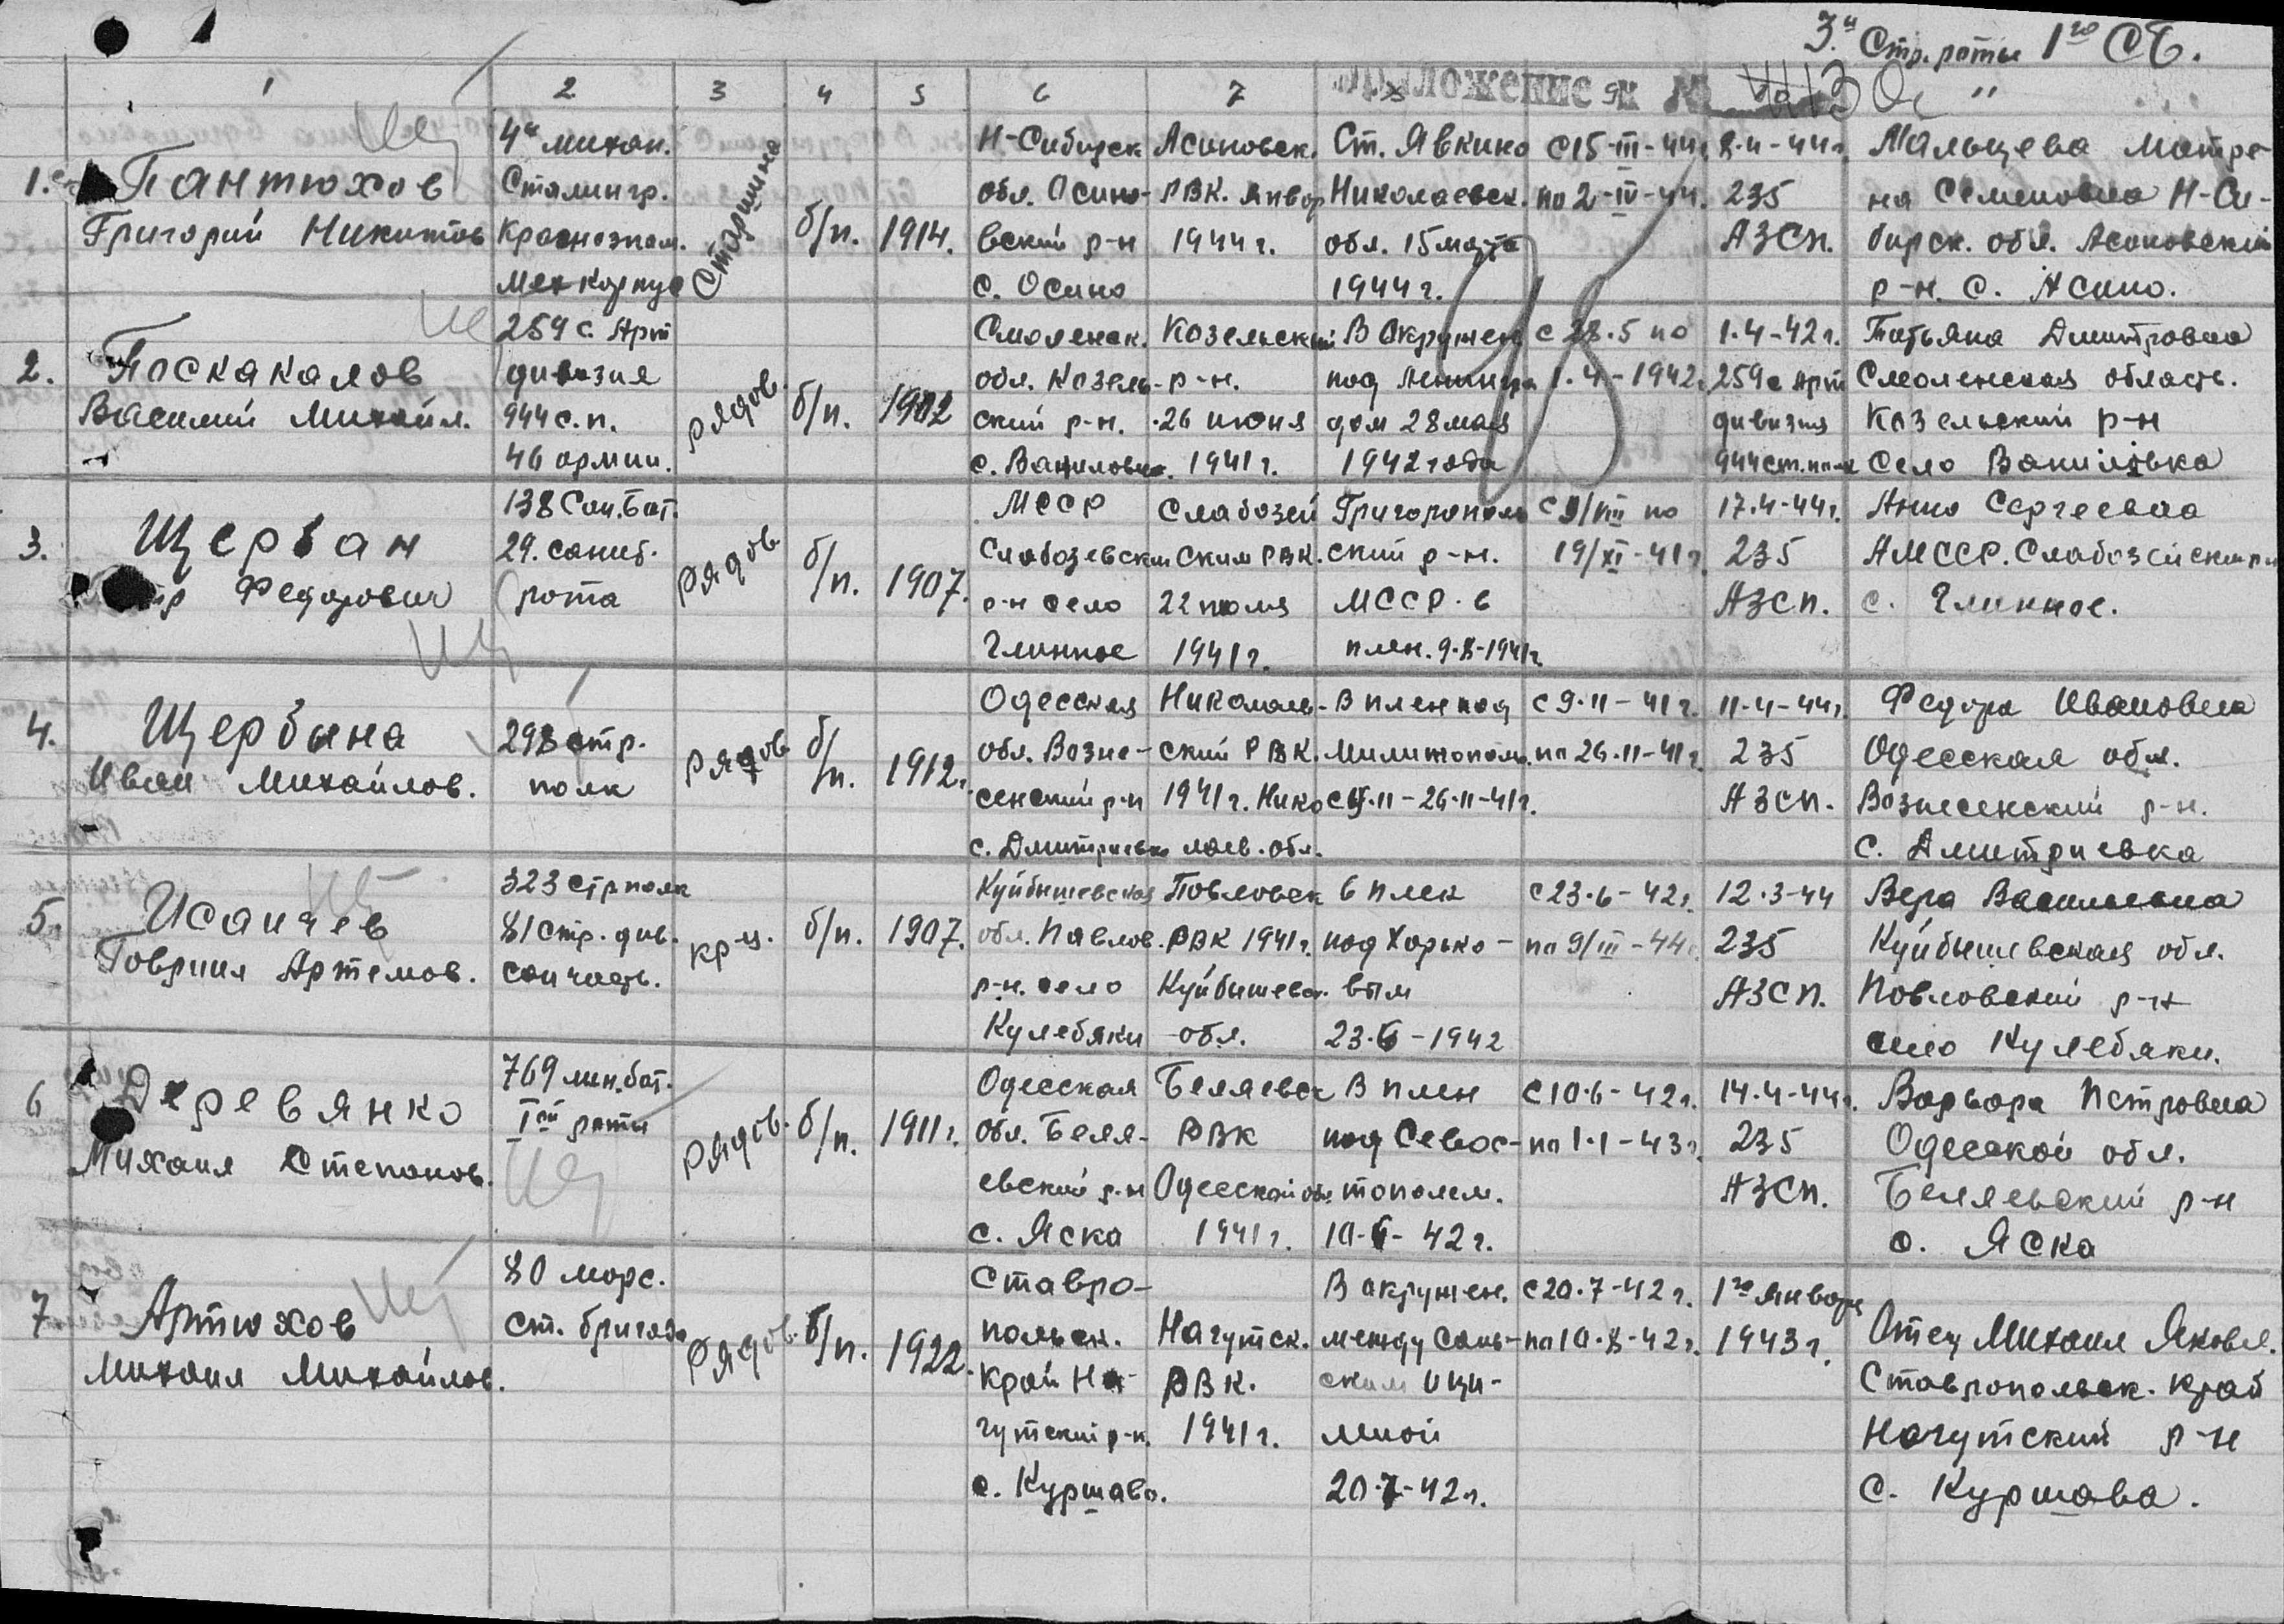 3й Стр. роты 1го СБ.
Приложение к №
1 2 3 4 5 6 7 8 9
1. Пантюхов
Григорий Никитов
4й михан.
Сталингр.
Краснознам.
Мехкорпус
Старшина
б/п.
1914.
Н-Сибирск
обл. Осино-
вский р-н
с. Осино
Асиновск.
РВК. Январ
1944 г.
Ст. Явкино
Николаевск.
обл. 15 марта
1944 г.
с 15-III-44г.
по 2-IV-44.
2-4-44г.
235
АЗСП.
Мальцева Матре-
на Семеновна Н-Си-
бирск. обл. Асиновский
р-н. с. Асино.
2. Поскакалов
Василий Михайл.
259 с. Арт
дивизия
944 с.п.
46 армии.
рядов.
б/п.
1902
Смоленск.
обл. Козель-
ский р-н.
с. Вациловка.
Козельский
р-н.
26 июня
1941 г.
В Окружен
под Ленингра
дом 28 мая
1942 года
с 28.5 по
1.4-1942г
1.4-42г.
259с Арт
дивизия
944 ст. полк
Татьяна Дмитровна
Смоленская область.
Козельский р-н
Село Вациловка
3. Щербан
Федорович
138 Сан. Бат.
29. санит.
рота
рядов.
б/п.
1907.
МССР
Слабозевский
р-н село
Глинное
Слабозей
ским РВК.
22 июля
1941 г.
Григорополь
ский р-н.
МССР. в
плен. 9-8-1941г.
с 9/VIII по
19/XI-41г.
17.4-44г.
235
АЗСП.
Анна Сергеевна
АМССР. Слабозейский р-н
с. Глинное.
4. Щербина
Иван Михайлов.
298 стр.
полк
рядов
б/п.
1912г.
Одесская
обл. Возне-
сенский р-н
с. Дмитриевка
Николаев-
ский РВК.
1941 г. Нико
лаев. обл.
В плен под
Милитополь.
с 9.11-26.11-41г.
с 9.11-41г.
по 26.11-41г.
11-4-44г.
235
АЗСП.
Федора Ивановна
Одесская обл.
Вознесенский р-н.
с. Дмитриевка
5. Исанчев
Гаврил Артемов.
323 стр полк
81 стр. див.
сан часть.
кр-ц.
б/п.
1907.
Куйбышевская
обл. Павлов.
р-н. село
Кулебяки
Повловск
РВК 1941г.
Куйбышевск.
обл.
в плен
под Харько-
вым
23.6-1942
с 23.6-42г.
по 9/III-44г
12.3-44
235
АЗСП.
Вера Васильевна
Куйбышевская обл.
Повловский р-н
село Кулебяки.
6 Деревянко
Михаил Степанов.
769 мин. бат.
1ой роты
рядов.
б/п.
1911г.
Одесская
обл. Беля-
евский р-н
с. Яска
Беляевск
РВК
Одесской обл.
1941 г.
В плен
под Севас-
тополем.
10-6-42г.
с 10.6-42г.
по 1.1-43г.
14.4-44г.
235
АЗСП.
Варвара Петровна
Одесской обл.
Беляевский р-н
с. Яска
7. Артюхов
Михаил Михайлов.
80 морс.
ст. бригада
рядов.
б/п.
1922.
Ставро-
польск.
край На-
гутский р-н.
с. Куршаво.
Нагутск.
РВК.
1941 г.
В окружен.
между Саль-
ским и Ци-
мной
20.7-42г.
с 20.7-42г.
по 10.8-42г.
1го января
1943г.
Отец Михаил Яковл.
Ставропольск. край
Нагутский р-н
с. Куршава.